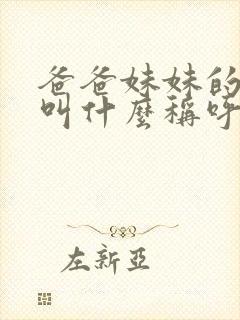 爸爸妹妹的
叫什麼稱呼
左新亞